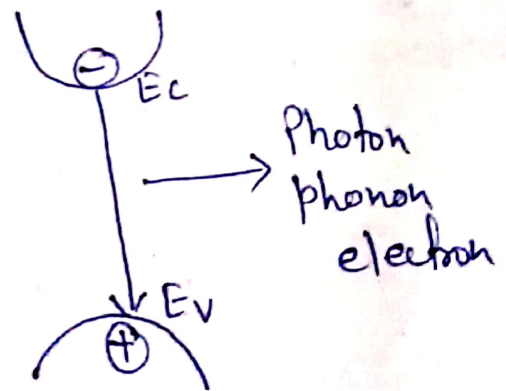 -
Ec
Photon
phonon
electron
Ev
+